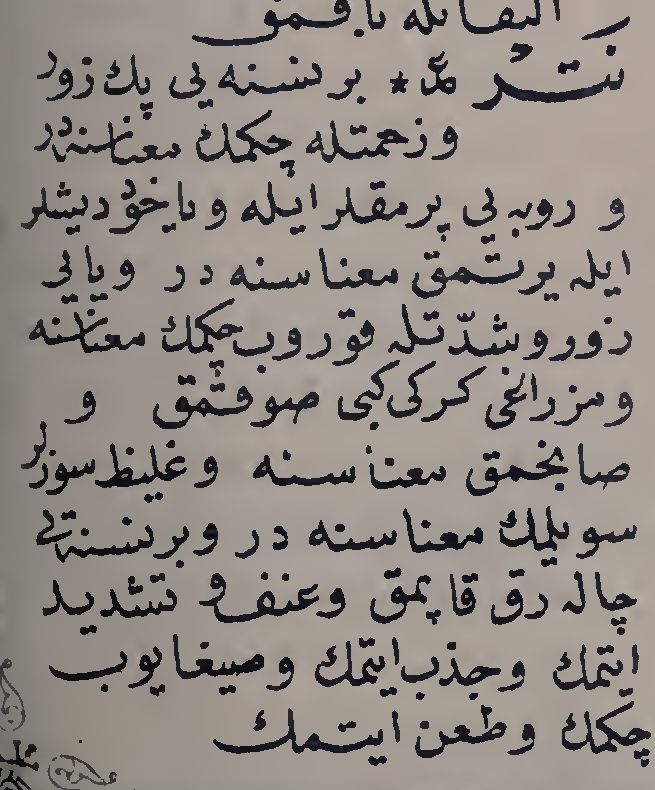 التقائله یا قمق
نتر مد * بر نسنه یی پك زور
و زحمتله چكمك معناسنه در
و روبه یی پرمقلر ایله و یاخود دیشلر
ایله یرتمق معناسنه در و یایی
زور و شدّتله قوروب چكمك معناسنه
و مزراغی كركی كبی صوقمق و
صابخمق معناسنه و غلیظ سوزلر
سویلمك معناسنه در و بر نسنه یی
چاله رق قاپمق و عنف و تشدید
ایتمك و جذب ایتمك و صیغایوب
چكمك و طعن ایتمك